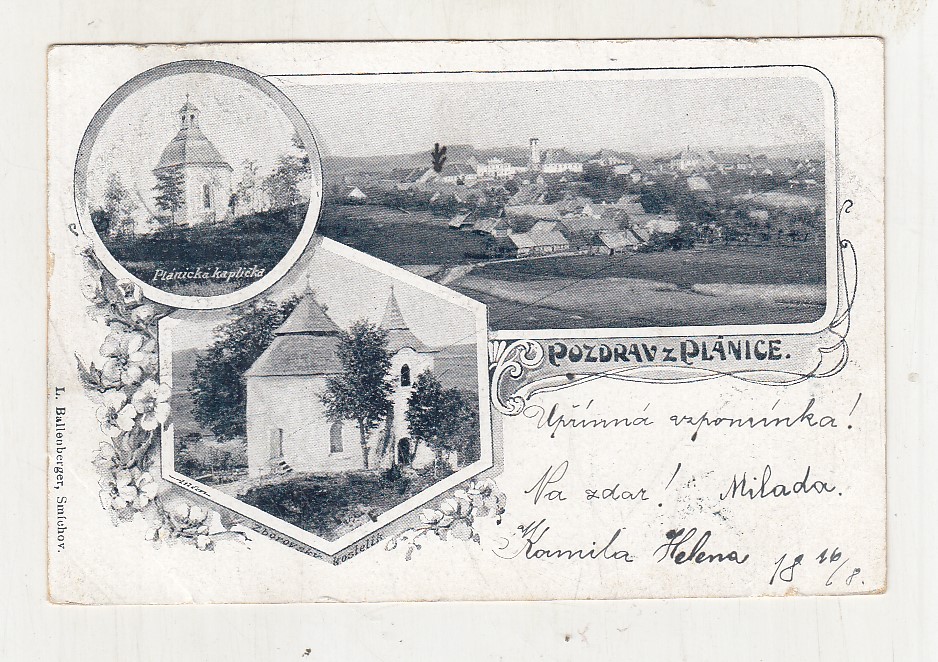 Plánická kaplička
POZDRAV Z PLÁNICE.
Zborovský kostelík
L. Ballenberger, Smíchov.
Upřímná vzpomínka!
Na zdar! Milada.
Kamila Helena
18 16/8.